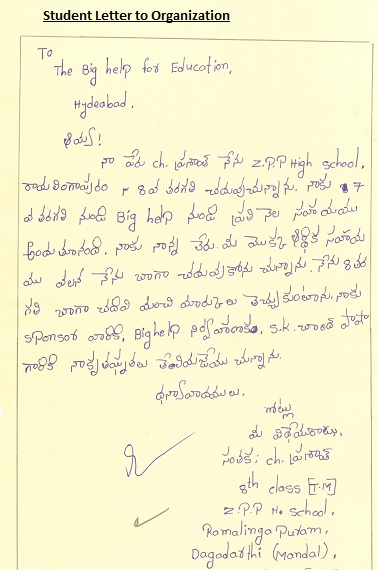 Student Letter to Organization
To
The Big help for Education,
Hydeabad.
నా పేరు ch. ప్రశాంత్ నేను Z.P.P High school,
రామలింగాపురం 8వ తరగతి చదువుచున్నాను. నాకు 7
వ తరగతి నుండి Big help నుండి ప్రతి నెల సహాయము
అందుతూనంది. నాకు నాన్న లేరు. మీ యొక్క ఆర్థిక సహాయ
ము వలన నేను బాగా చదువుకోను చున్నాను. నేను 8తర
గతి బాగా చదివి మంచి మార్కులు తెచ్చుకుంటాను. నాకు
sponsor వారికి, Bighelp నిర్వాహకులకు, S.K. చాంద్ పాషా
గారికి నా కృతఙ్ఞతలు తెలియజేయు చున్నాను.
ధన్యవాదములు.
ఇట్లు
మీ విధేయుడు,
సంతకం: ch. ప్రశాంత్
8th class [T.M]
Z.P.P H. school,
Ramalinga Puram,
Dagadarthi (Mandal),